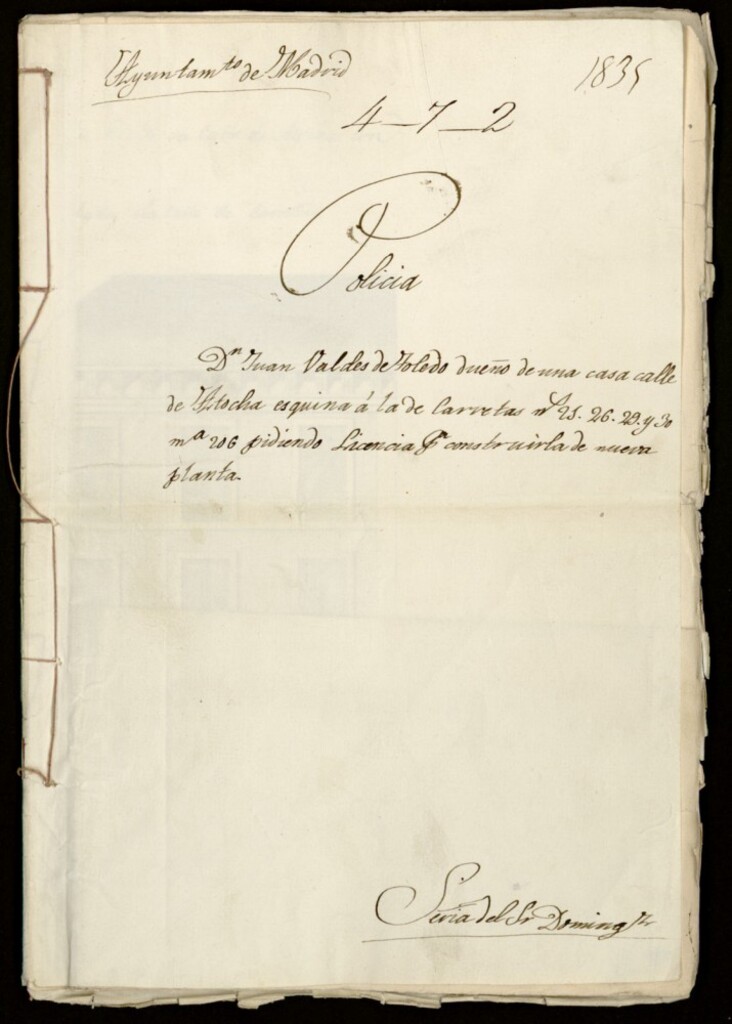 Ayuntamto de Madrid
1835
4-7-2
Policia
Dn Juan Valdes de Toledo dueño de una casa calle
de Atocha esquina á la de Carretas nos 25. 26. 29. y 30
ma 206 pidiendo Licencia pa construirla de nueva
planta.
Sria del Sr Doming